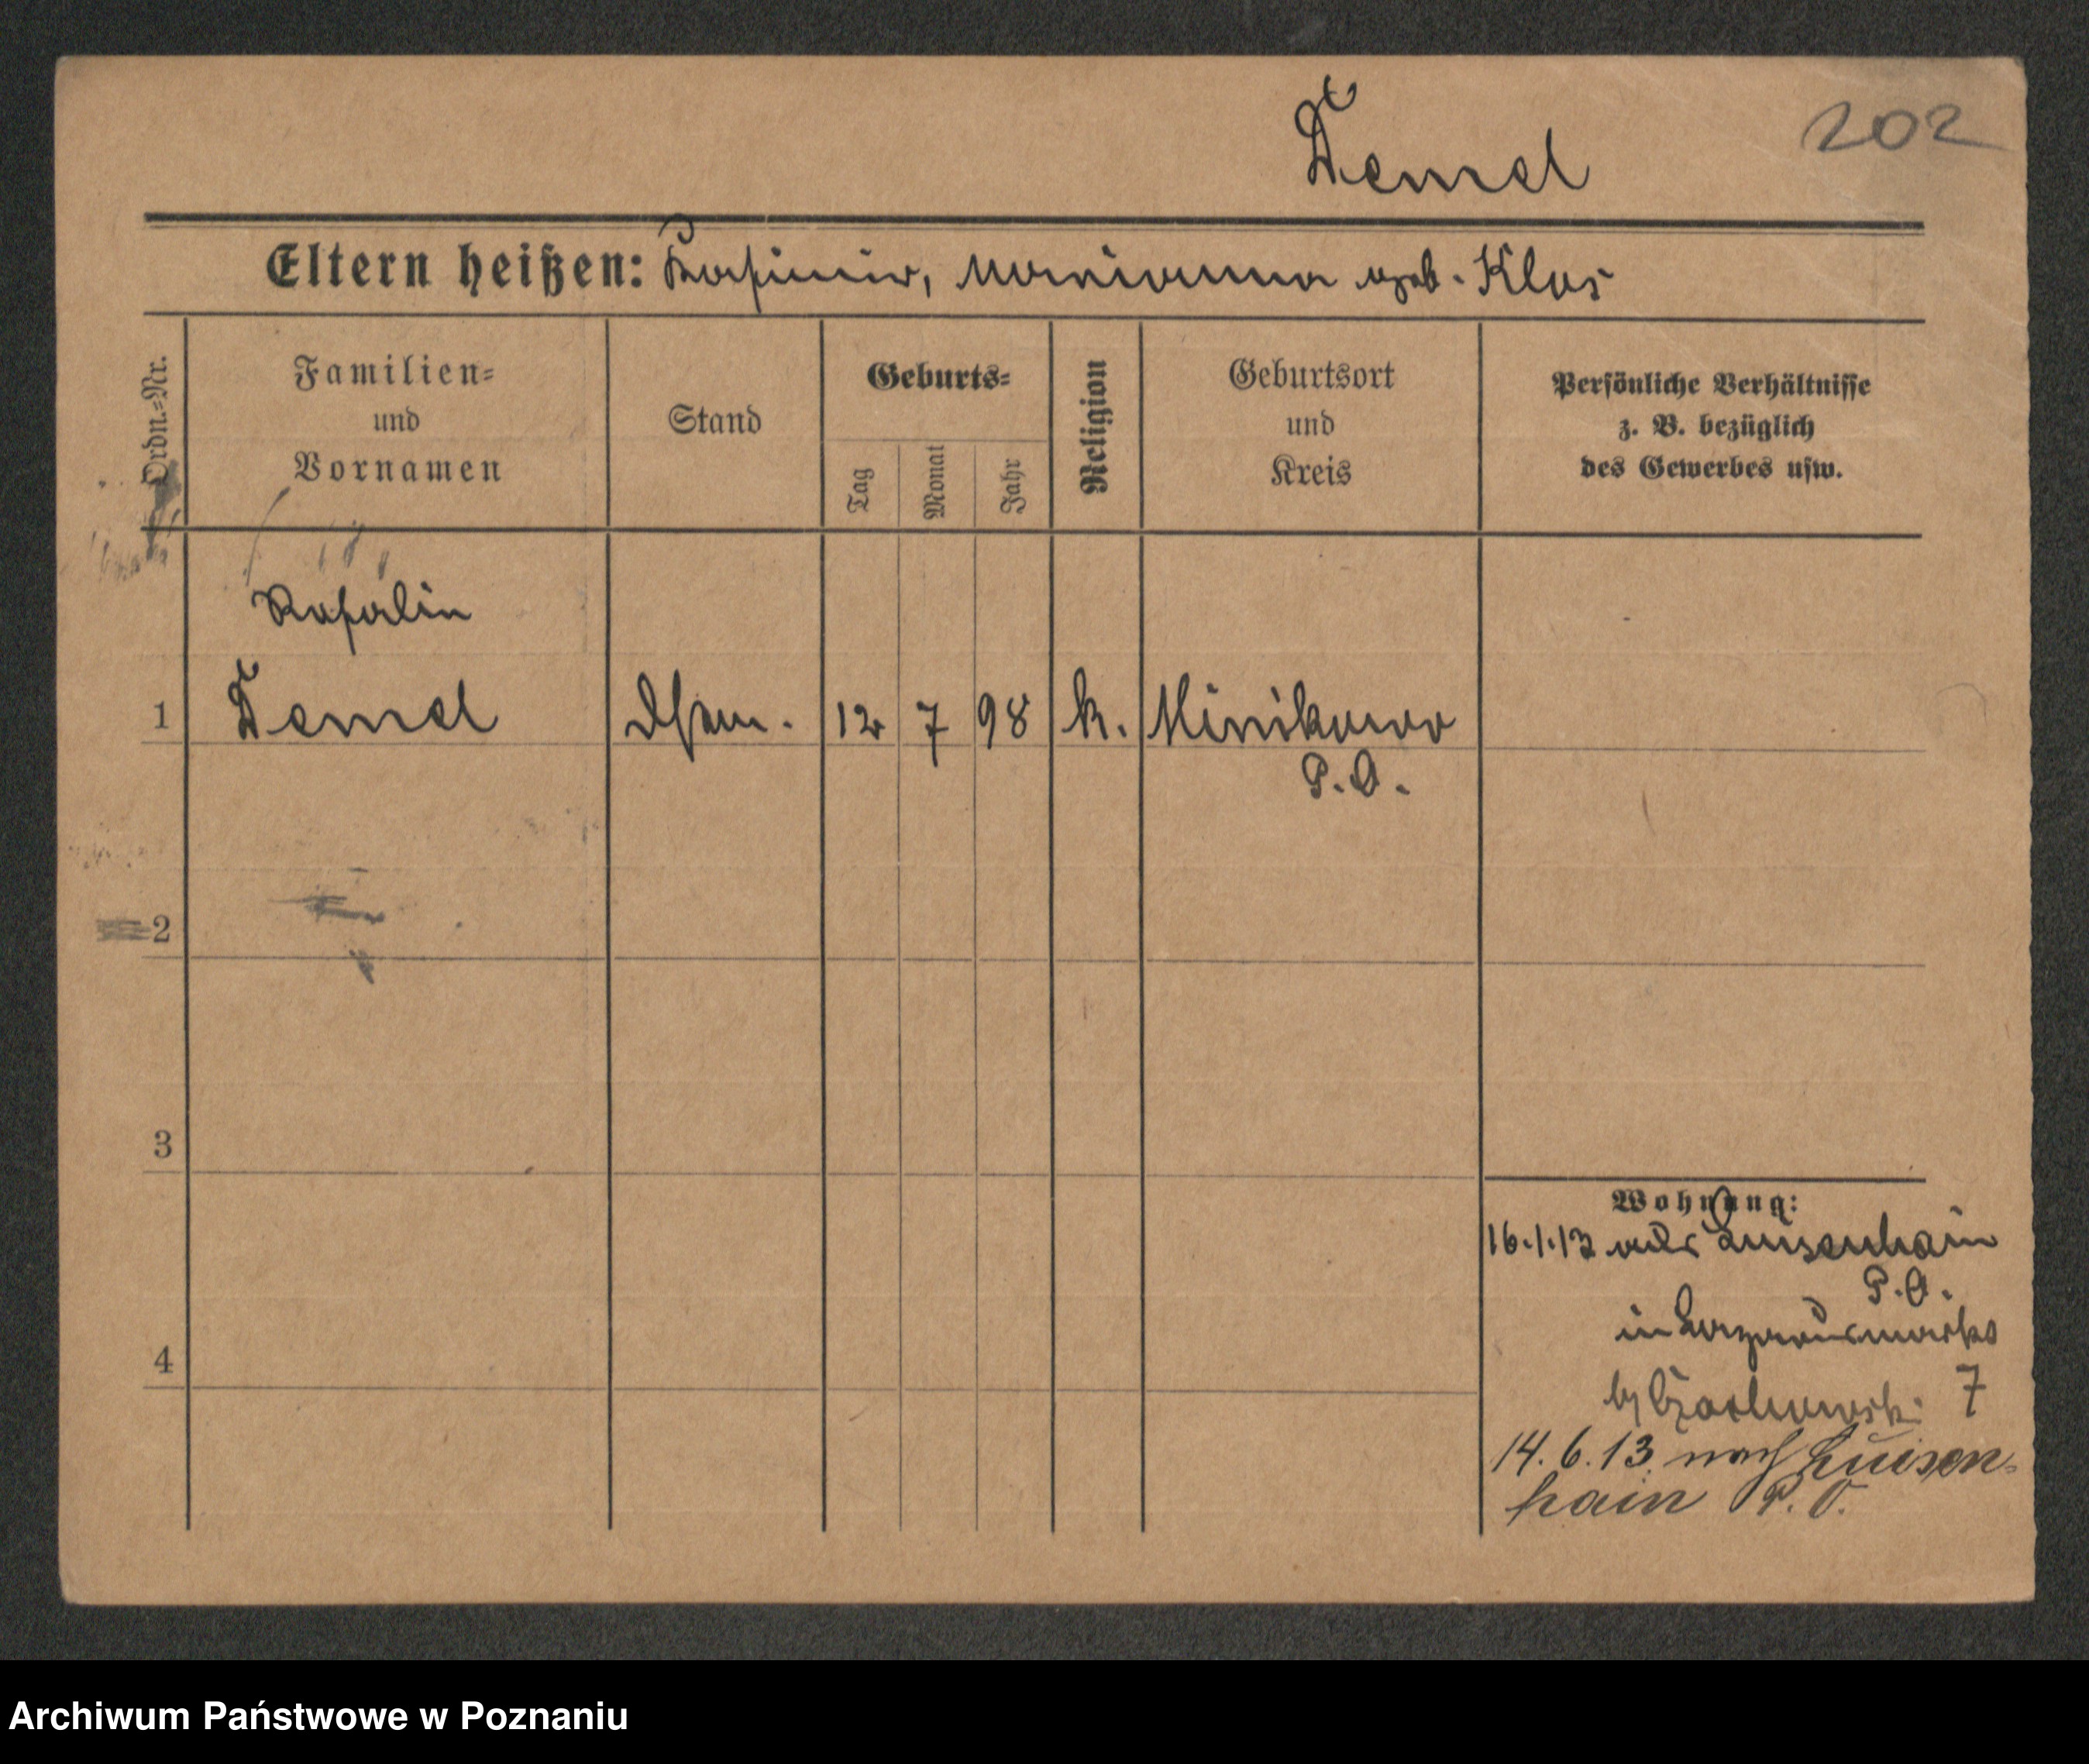 Demel
202
Eltern heißen: Kasimir, Marianna geb. Klos
Ordn.-Nr.
Familien-
und
Vornamen
Stand
Geburts-
Tag
Monat
Jahr
Religion
Geburtsort
und
Kreis
Persönliche Verhältnisse
z. B. bezüglich
des Gewerbes usw.
Rosalin
1 Demel 12 7 98 k. Minikowo
P. O.
2
3
Wohnung:
16.1.13 Luisenhain
P. O.
4
7
14. 6. 13 nach Luisen-
hain P. O.
Archiwum Państwowe w Poznaniu